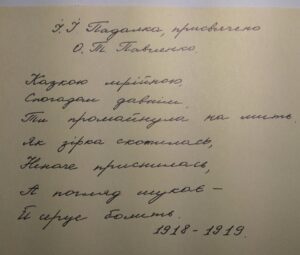 І. І Падалка, присвячено
О. Т. Павленко.
Казкою мрійною,
Спогадом давнім
Ти промайнула на мить.
Як зірка скотилась,
Неначе приснилась,
А погляд шукає —
Й серце болить.
1918 - 1919.